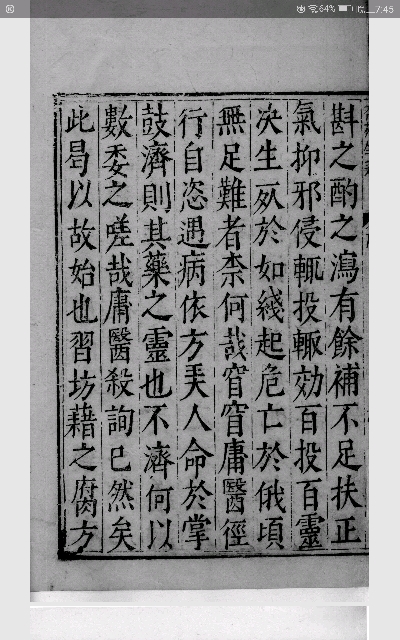 64% 7:45
斟之酌之瀉有餘補不足扶正
氣抑邪侵輒投輒効百投百靈
决生死於如綫起危亡於俄頃
無足難者柰何哉窅窅庸醫徑
行自恣遇病依方夭人命於掌
鼓濟則其藥之靈也不濟何以
數委之嗟哉庸醫殺詢已然矣
此曷以故始也習坊藉之腐方